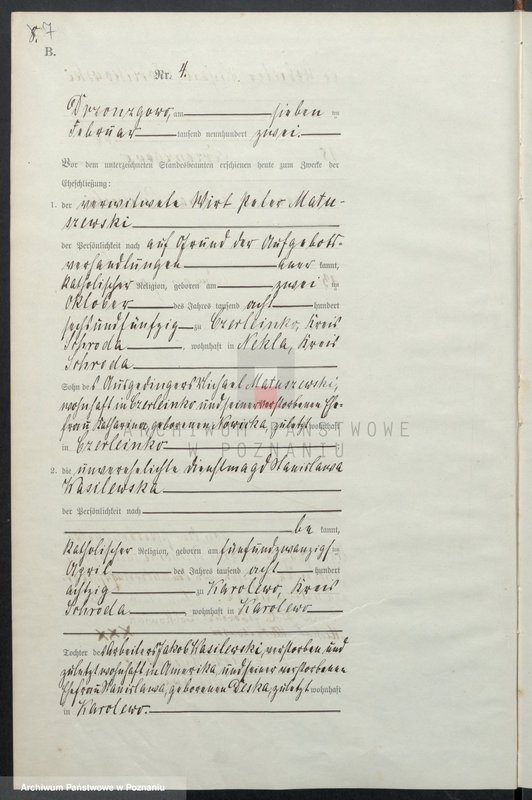 8. 7
B.
Nr. 4.
Dzonzgowo, am sieben ten
Februar tausend neunhundert zwei.
Vor dem unterzeichneten Standesbeamten erschienen heute zum Zwecke der
Eheschließung:
1. der verwitwete Wirt Peter Matu-
szewski
der Persönlichkeit nach auf Grund der Aufgebots-
verhandlungen aner kannt,
katholischer Religion, geboren am zwei ten
Oktober des Jahres tausend acht hundert
sechsundfünfzig zu Czerleinko, Kreis
Schroda, wohnhaft in Nekla, Kreis
Schroda
Sohn des Ausgedingers Michael Matuszewski,
wohnhaft in Czerleinko und seiner verstorbenen Ehe-
frau Katharina, geborenen Nowicka, zuletzt wohnhaft
in Czerleinko
2. die unverehelichte Dienstmagd Stanislawa
Wasilewska
der Persönlichkeit nach
be kannt,
katholischer Religion, geboren am fünfundzwanzigs ten
April des Jahres tausend acht hundert
achtzig zu Karolewo, Kreis
Schroda, wohnhaft in Karolewo
Tochter des Arbeiters Jakob Wasilewski, verstorben und
zuletzt wohnhaft in Amerika, und seiner verstorbenen
Ehefrau Stanislawa, geborenen Deska, zuletzt wohnhaft
in Karolewo.
ARCHIWUM PAŃSTWOWE
W POZNANIU
Archiwum Państwowe w Poznaniu